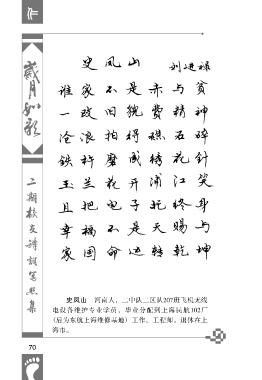 歲月如歌
二期校友诗词写照集
史凤山 刘进禄
谁家不是赤与贫
一改旧貌费精神
沧浪拍得礁石碎
铁杵磨成绣花针
玉兰花开浦江笑
且把电子托终身
幸福不是天赐与
家国命运转乾坤
史凤山 河南人，二中队二区队207班飞机无线
电设备维护专业学员，毕业分配到上海民航102厂
（后为东航上海维修基地）工作。工程师，退休在上
海市。
70